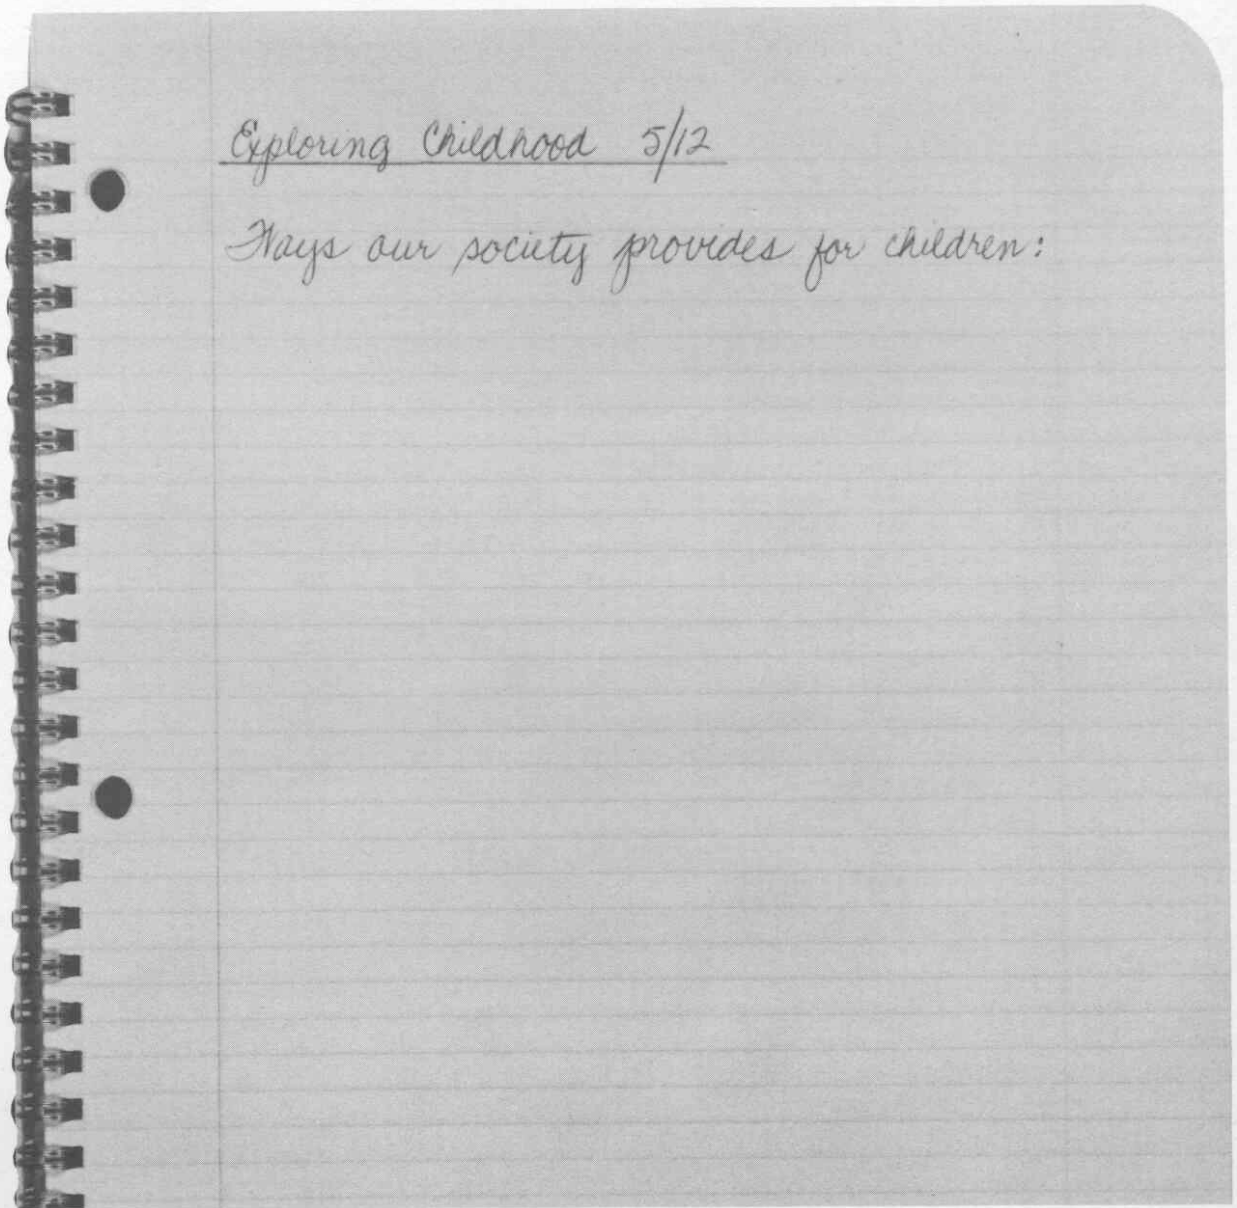 Exploring Childhood 5/12
Ways our society provides for children: